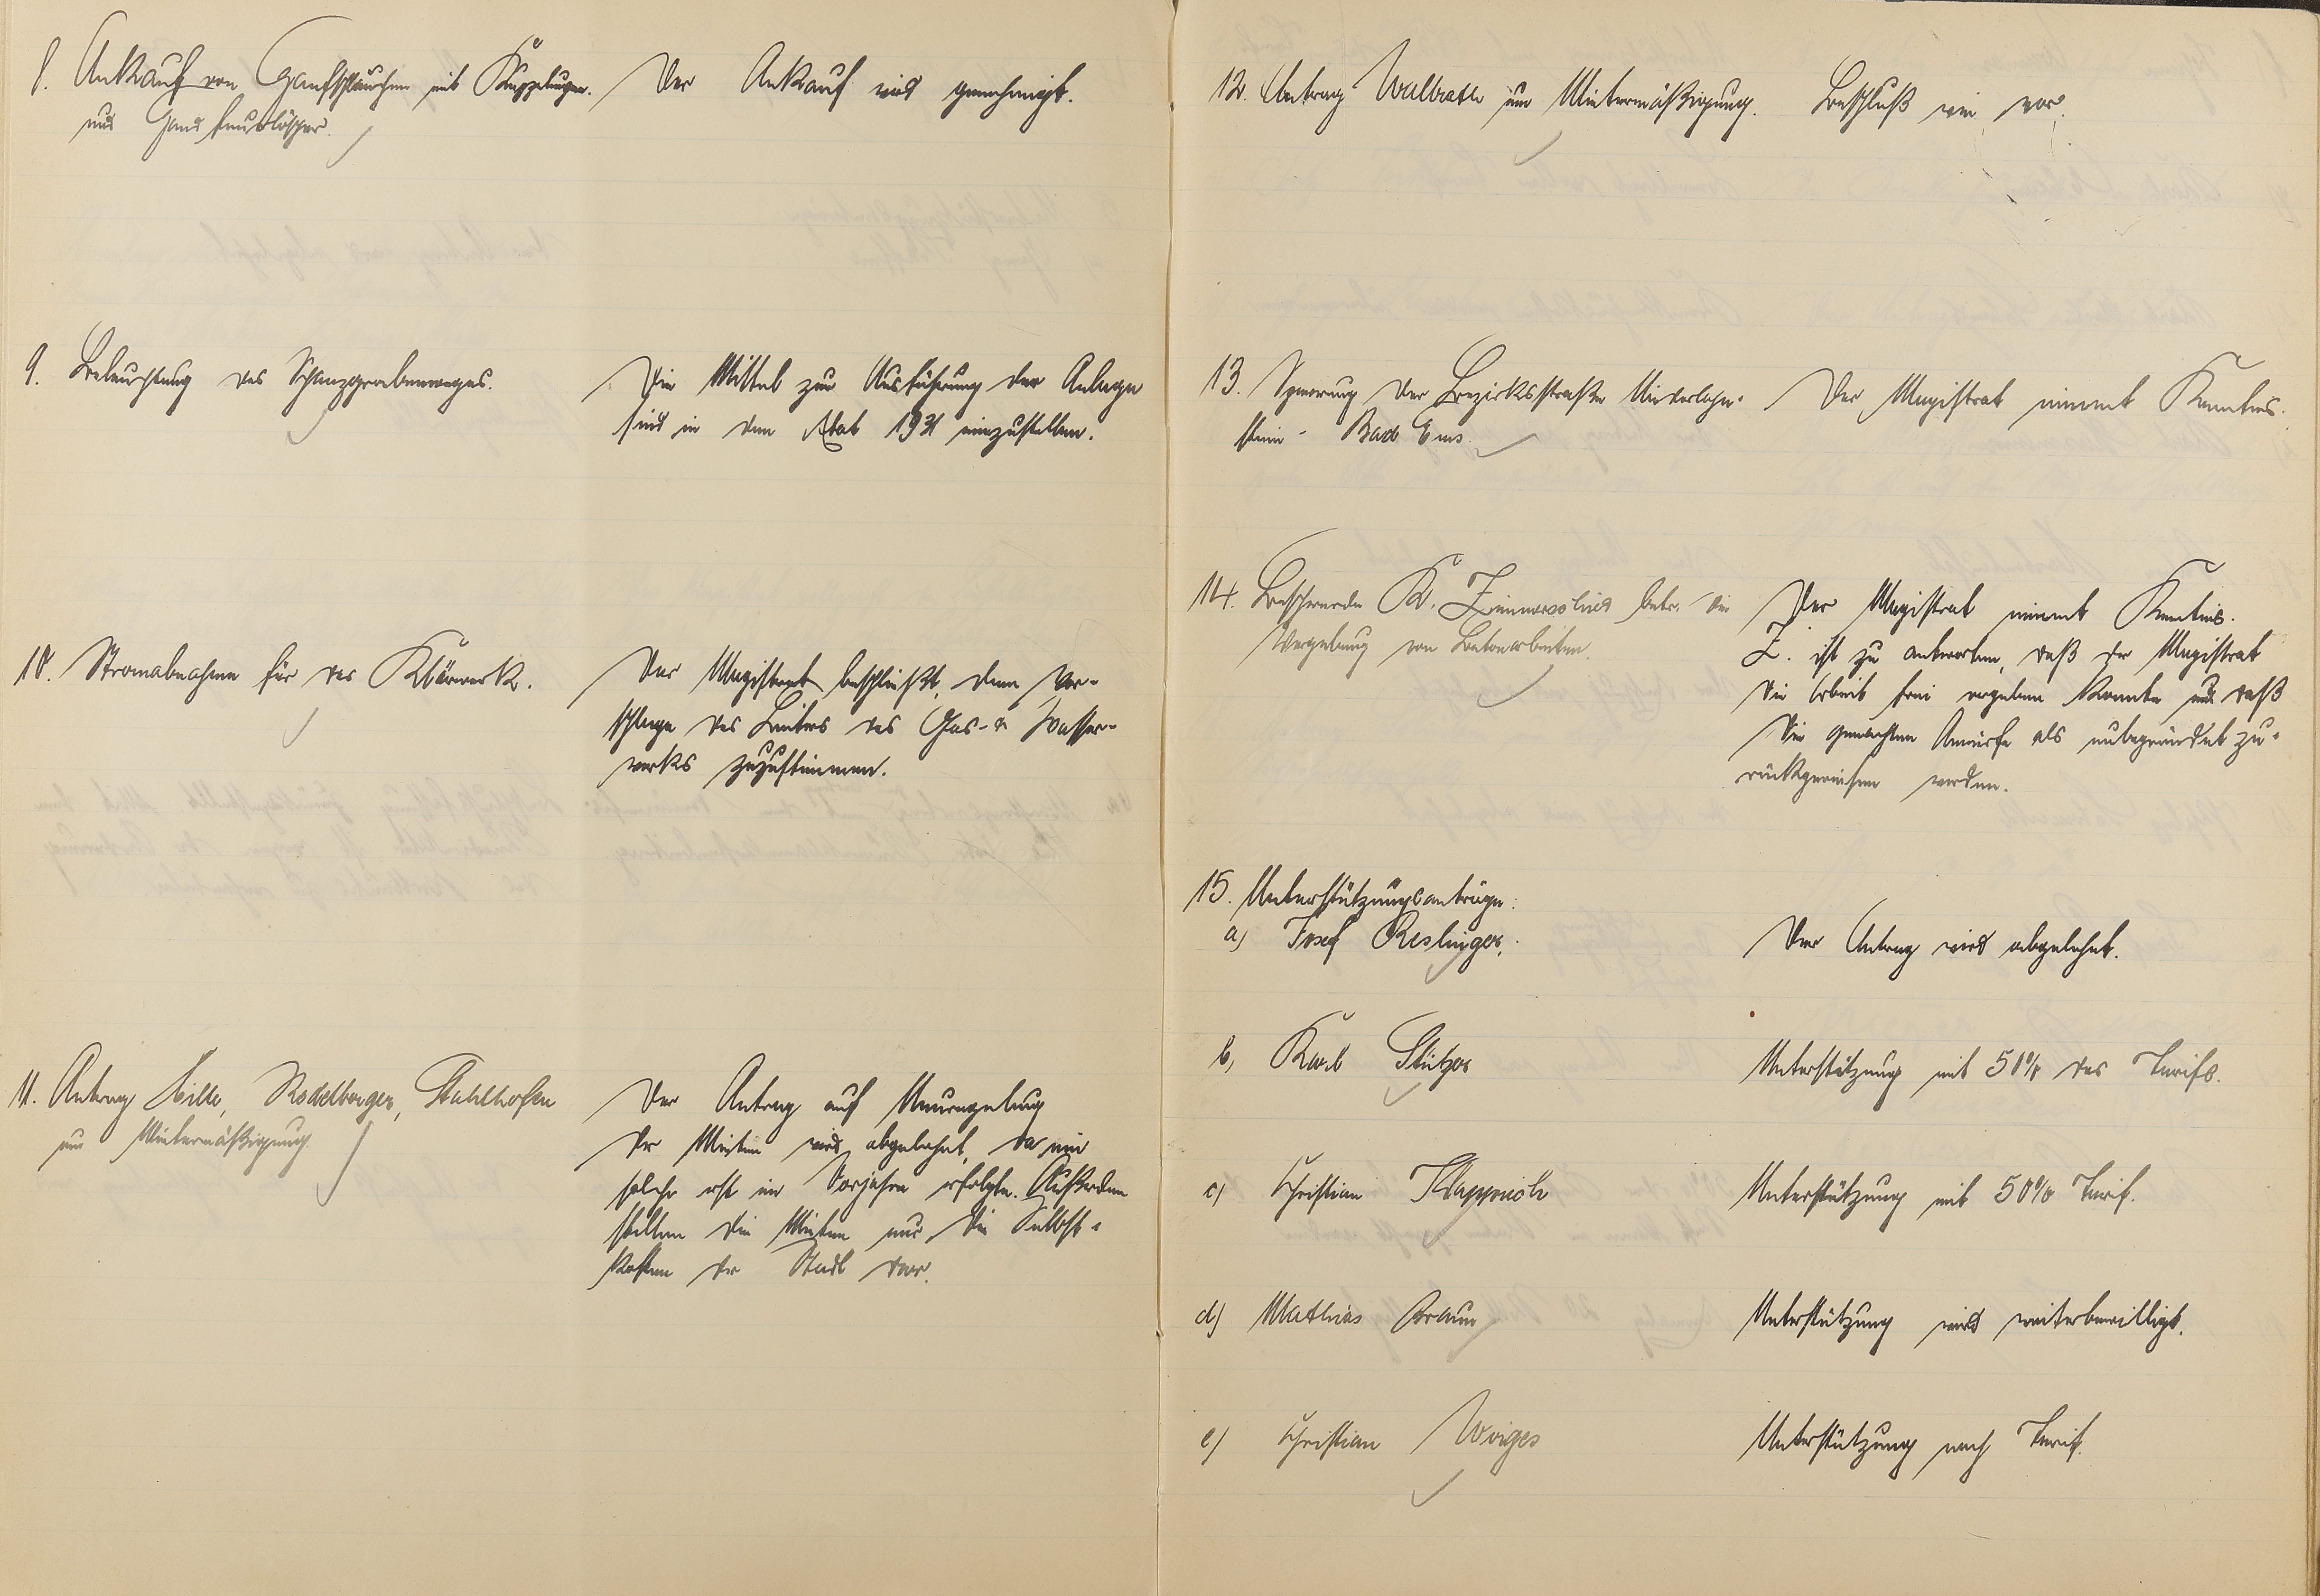 8. Ankauf von Hanfschläuchen mit Kuppelungen.
und Handfeuerlöscher.
Der Ankauf wird genehmigt.
9. Beleuchtung des Schanzgrabenweges.
Die Mittel zur Ausführung der Anlage
sind in den Etat 1931 einzustellen.
10. Stromabnahme für das Klärwerk.
Der Magistrat beschließt, dem Vor-
schlage des Leiters des Gas- & Wasser-
werks zuzustimmen.
11. Antrag Hille, Rodelberger, Stahlhofen
um Mietermäßigung
Der Antrag auf Neuregelung
der Mieten wird abgelehnt, da eine
solche erst im Vorjahre erfolgte. Außerdem
stellen die Mieten nur die Selbst-
kosten der Stadt dar.
12. Antrag Walbrath um Mietermäßigung.
Beschluß wie vor.
13. Sperrung der Bezirksstraße Niederlahn-
stein - Bad Ems.
Der Magistrat nimmt Kenntnis.
14. Beschwerde K. Zimmerschied betr. die
Vergebung von Betonarbeiten.
Der Magistrat nimmt Kenntnis.
Z. ist zu antworten, daß der Magistrat
die Arbeit frei vergeben konnte und daß
die gemachten Vorwürfe als unbegründet zu-
rückgewiesen werden.
15. Unterstützungsanträge:
a) Josef Reslinger.
Der Antrag wird abgelehnt.
b) Karl Stützer
Unterstützung mit 50% des Tarifs.
c) Christian Klapperich
Unterstützung mit 50% Tarif.
d) Mathias Braun
Unterstützung wird weiterbewilligt.
e) Christian Wirges
Unterstützung nach Tarif.